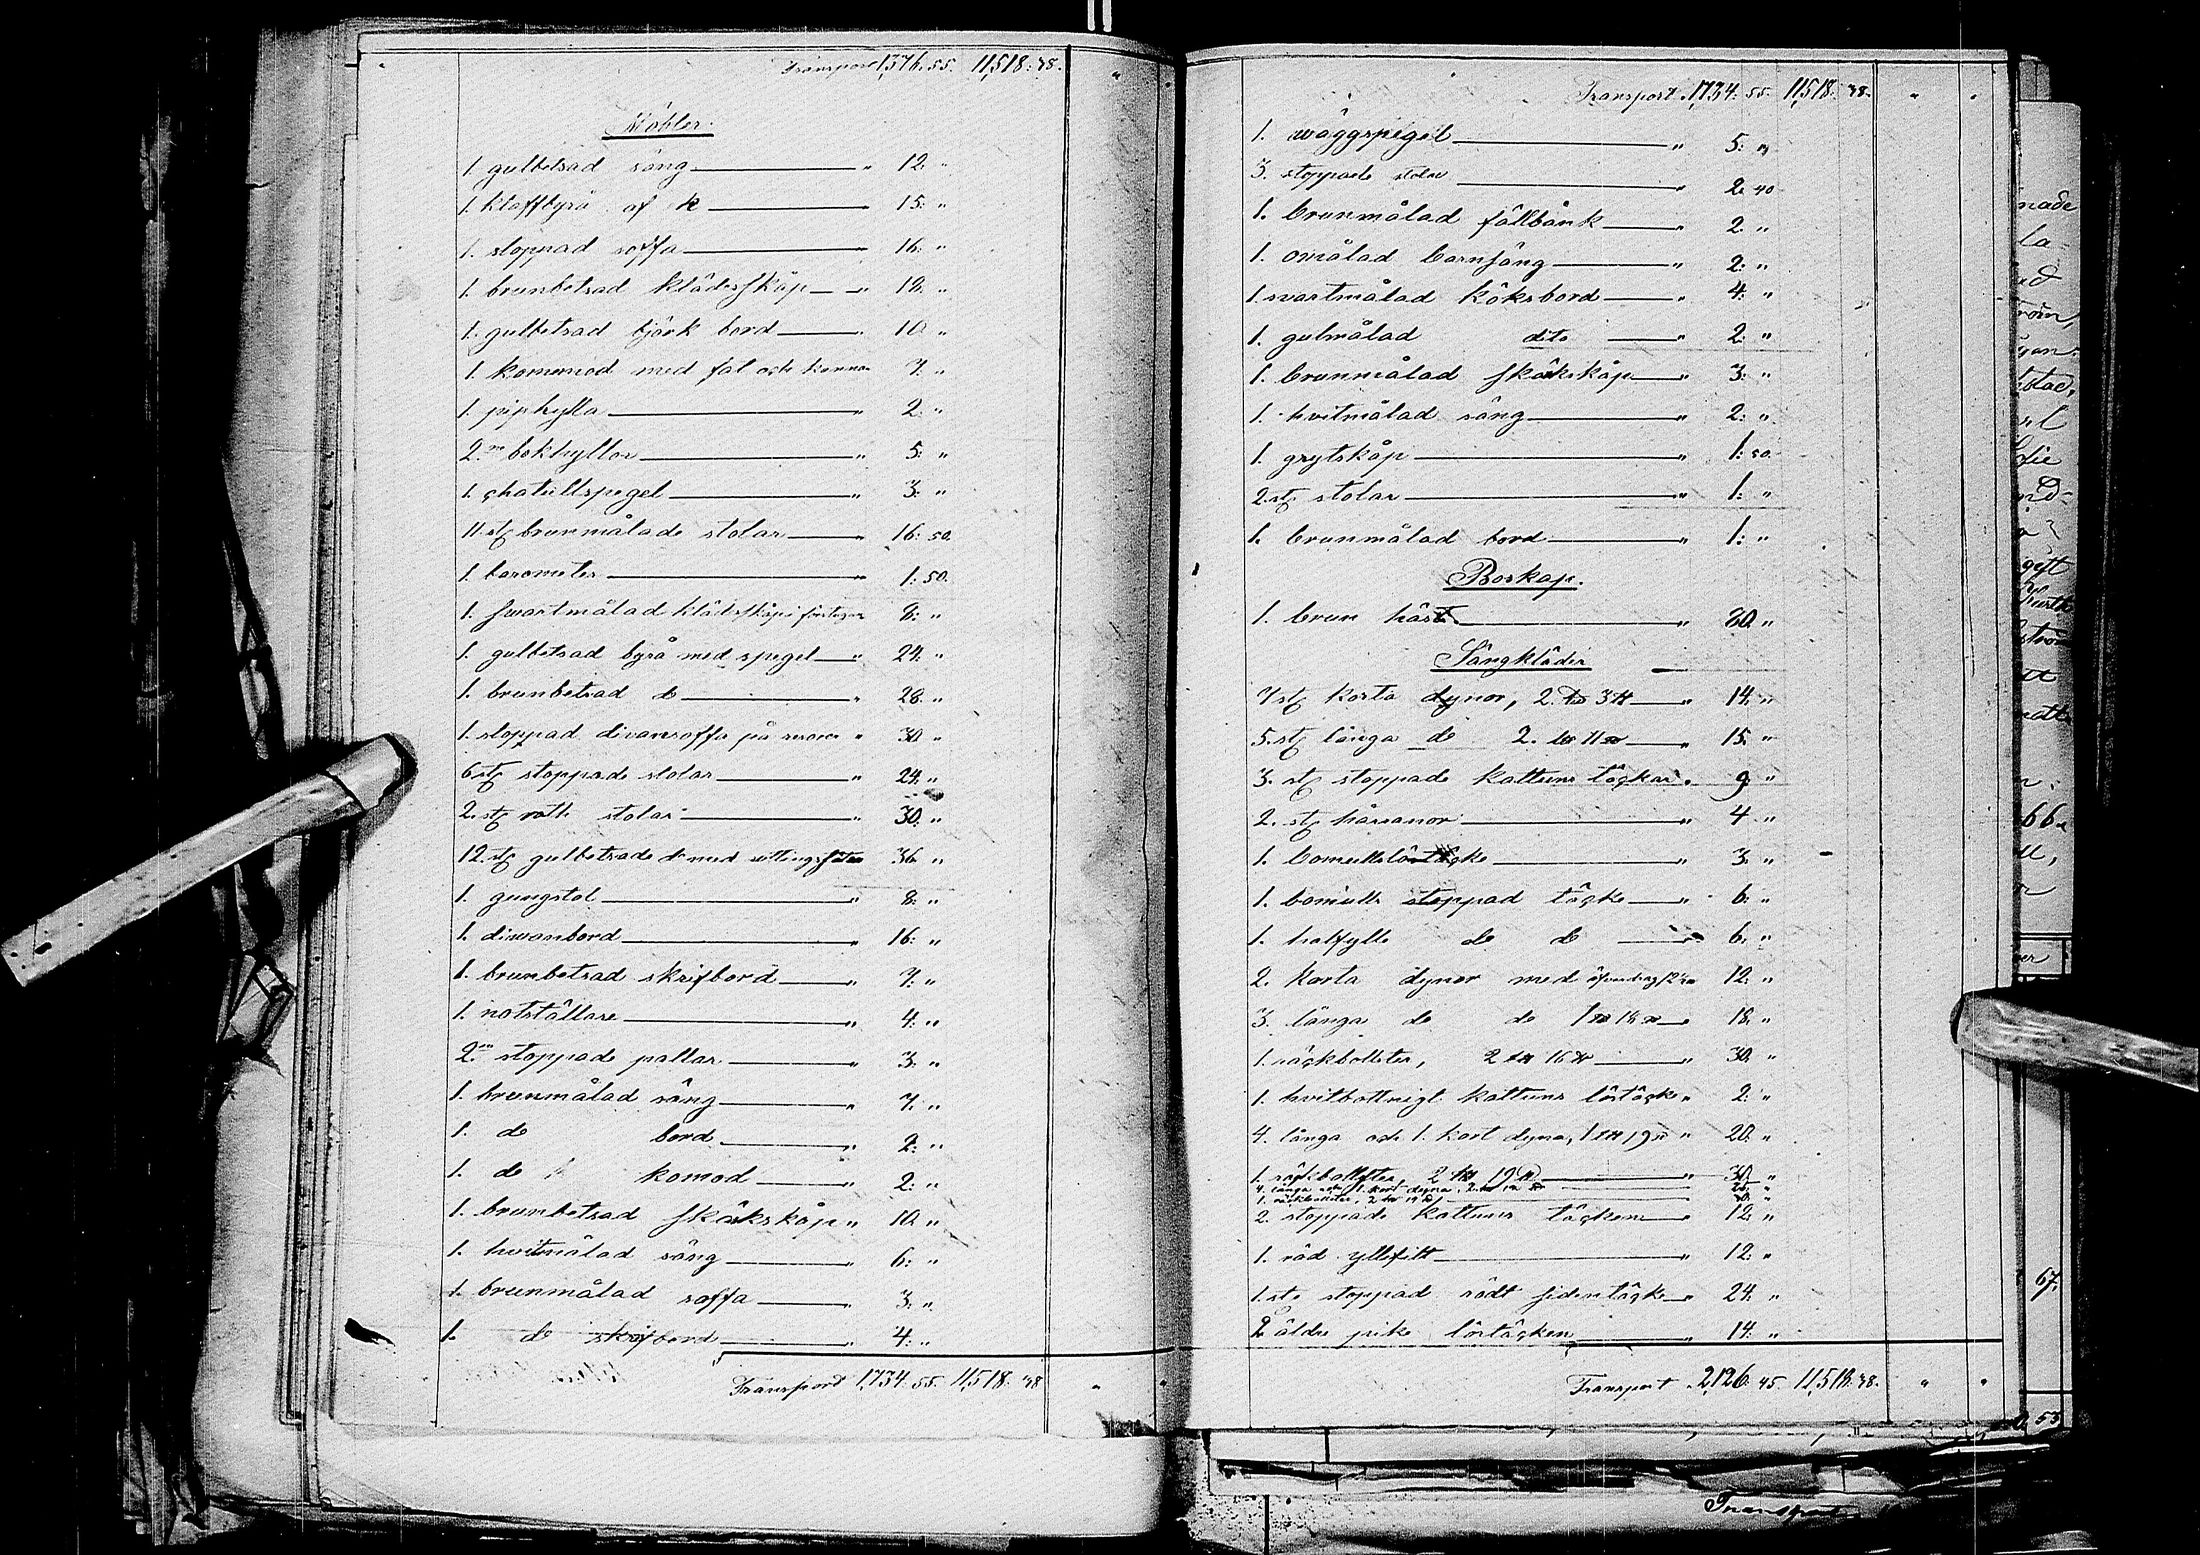 Transport 1,376. 55. 11,518: 38.
Möbler.
1. gulbetsad säng " 12: "
1. klaffbyrå af 15: "
1. stoppad soffa 16: "
1. brunbetsad klädesskåp " 12: "
1. gulbetsad björk bord " 10 "
1. kommod med fat och kanna 7: "
1. piphylla " 2: "
2. bokhyllor " 5: "
1. chatullspegel " 3: "
11. st brunmålade stolar " 16: 50.
1. barometer " 1: 50.
1. svartmålad klädesskåp i förstugan 8: "
1. gulbetsad byrå med spegel " 24: "
1. brunbetsad do " 28: "
1. stoppad divansoffa på " 30 "
6 st stoppade stolar " 24: "
2. st stolar " 30: "
12 st gulbetsade do med 36 "
1. gungstol " 8: "
1. diwanbord " 16: "
1. brunbetsad skrifbord " 7: "
1. notställare " 4: "
2. stoppade pallar " 3: "
1. brunmålad säng " 7: "
1. do bord " 2: "
1. do komod " 2: "
1. brunbetsad skänkskåp " 10: "
1. hvitmålad säng " 6: "
1. brunmålad soffa " 3: "
1. do skrifbord " 4: "
Transport 1,734. 55. 11,518. 38 " "
Transport " 1,734: 55. 11,518. 38. " "
1. wäggspegel " 5: "
3. stoppade stolar " 2. 40
1. brunmålad fällbänk " 2. "
1. omålad barnsäng " 2: "
1. svartmålad köksbord " 4: "
1. gulmålad dito " 2: "
1. brunmålad skänkskåp " 3: "
1. hvitmålad säng " 2: "
1. grytskåp " 1: 50.
2. st stolar " 1: "
1. brunmålad bord " 1: "
Boskap.
1. brun häst " 80. "
Sängkläder
7 st korta dynor, 2. 3 " 14. "
5. st långa do 2. 11 " 15. "
3. st stoppade kattuns täcken " 9 "
2. st " 4 "
1. bomullslöstäcke " 3: "
1. bomulls stoppad täcke " 6: "
1. halfylle do do " 6. "
2. korta dynor med 12. "
3. långa do do 1 18 " 18. "
1. räckbolster, 2 16 " 30. "
1. hvitbottnigt kattuns löstäcke " 2: "
4. långa och 1. kort dyna, 1 19 " 20. "
1. räckbolster, 2 19 " 30. "
4. långa och 1. kort dyna, 2
1. räckbolster, 2 19
2. stoppade kattuns täcken " 12. "
1. röd yllefilt " 12: "
1. st stoppad rödt sidentäcke " 24: "
2 äldre pike löstäcken " 14: "
Transport " 2,126. 45. 11,518: 38. " "
67.
53
Transport